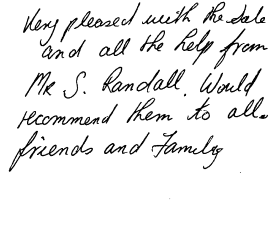 Very pleased with the Sale
and all the help from
Mr S. Randall. Would
recommend them to all.
friends and Family